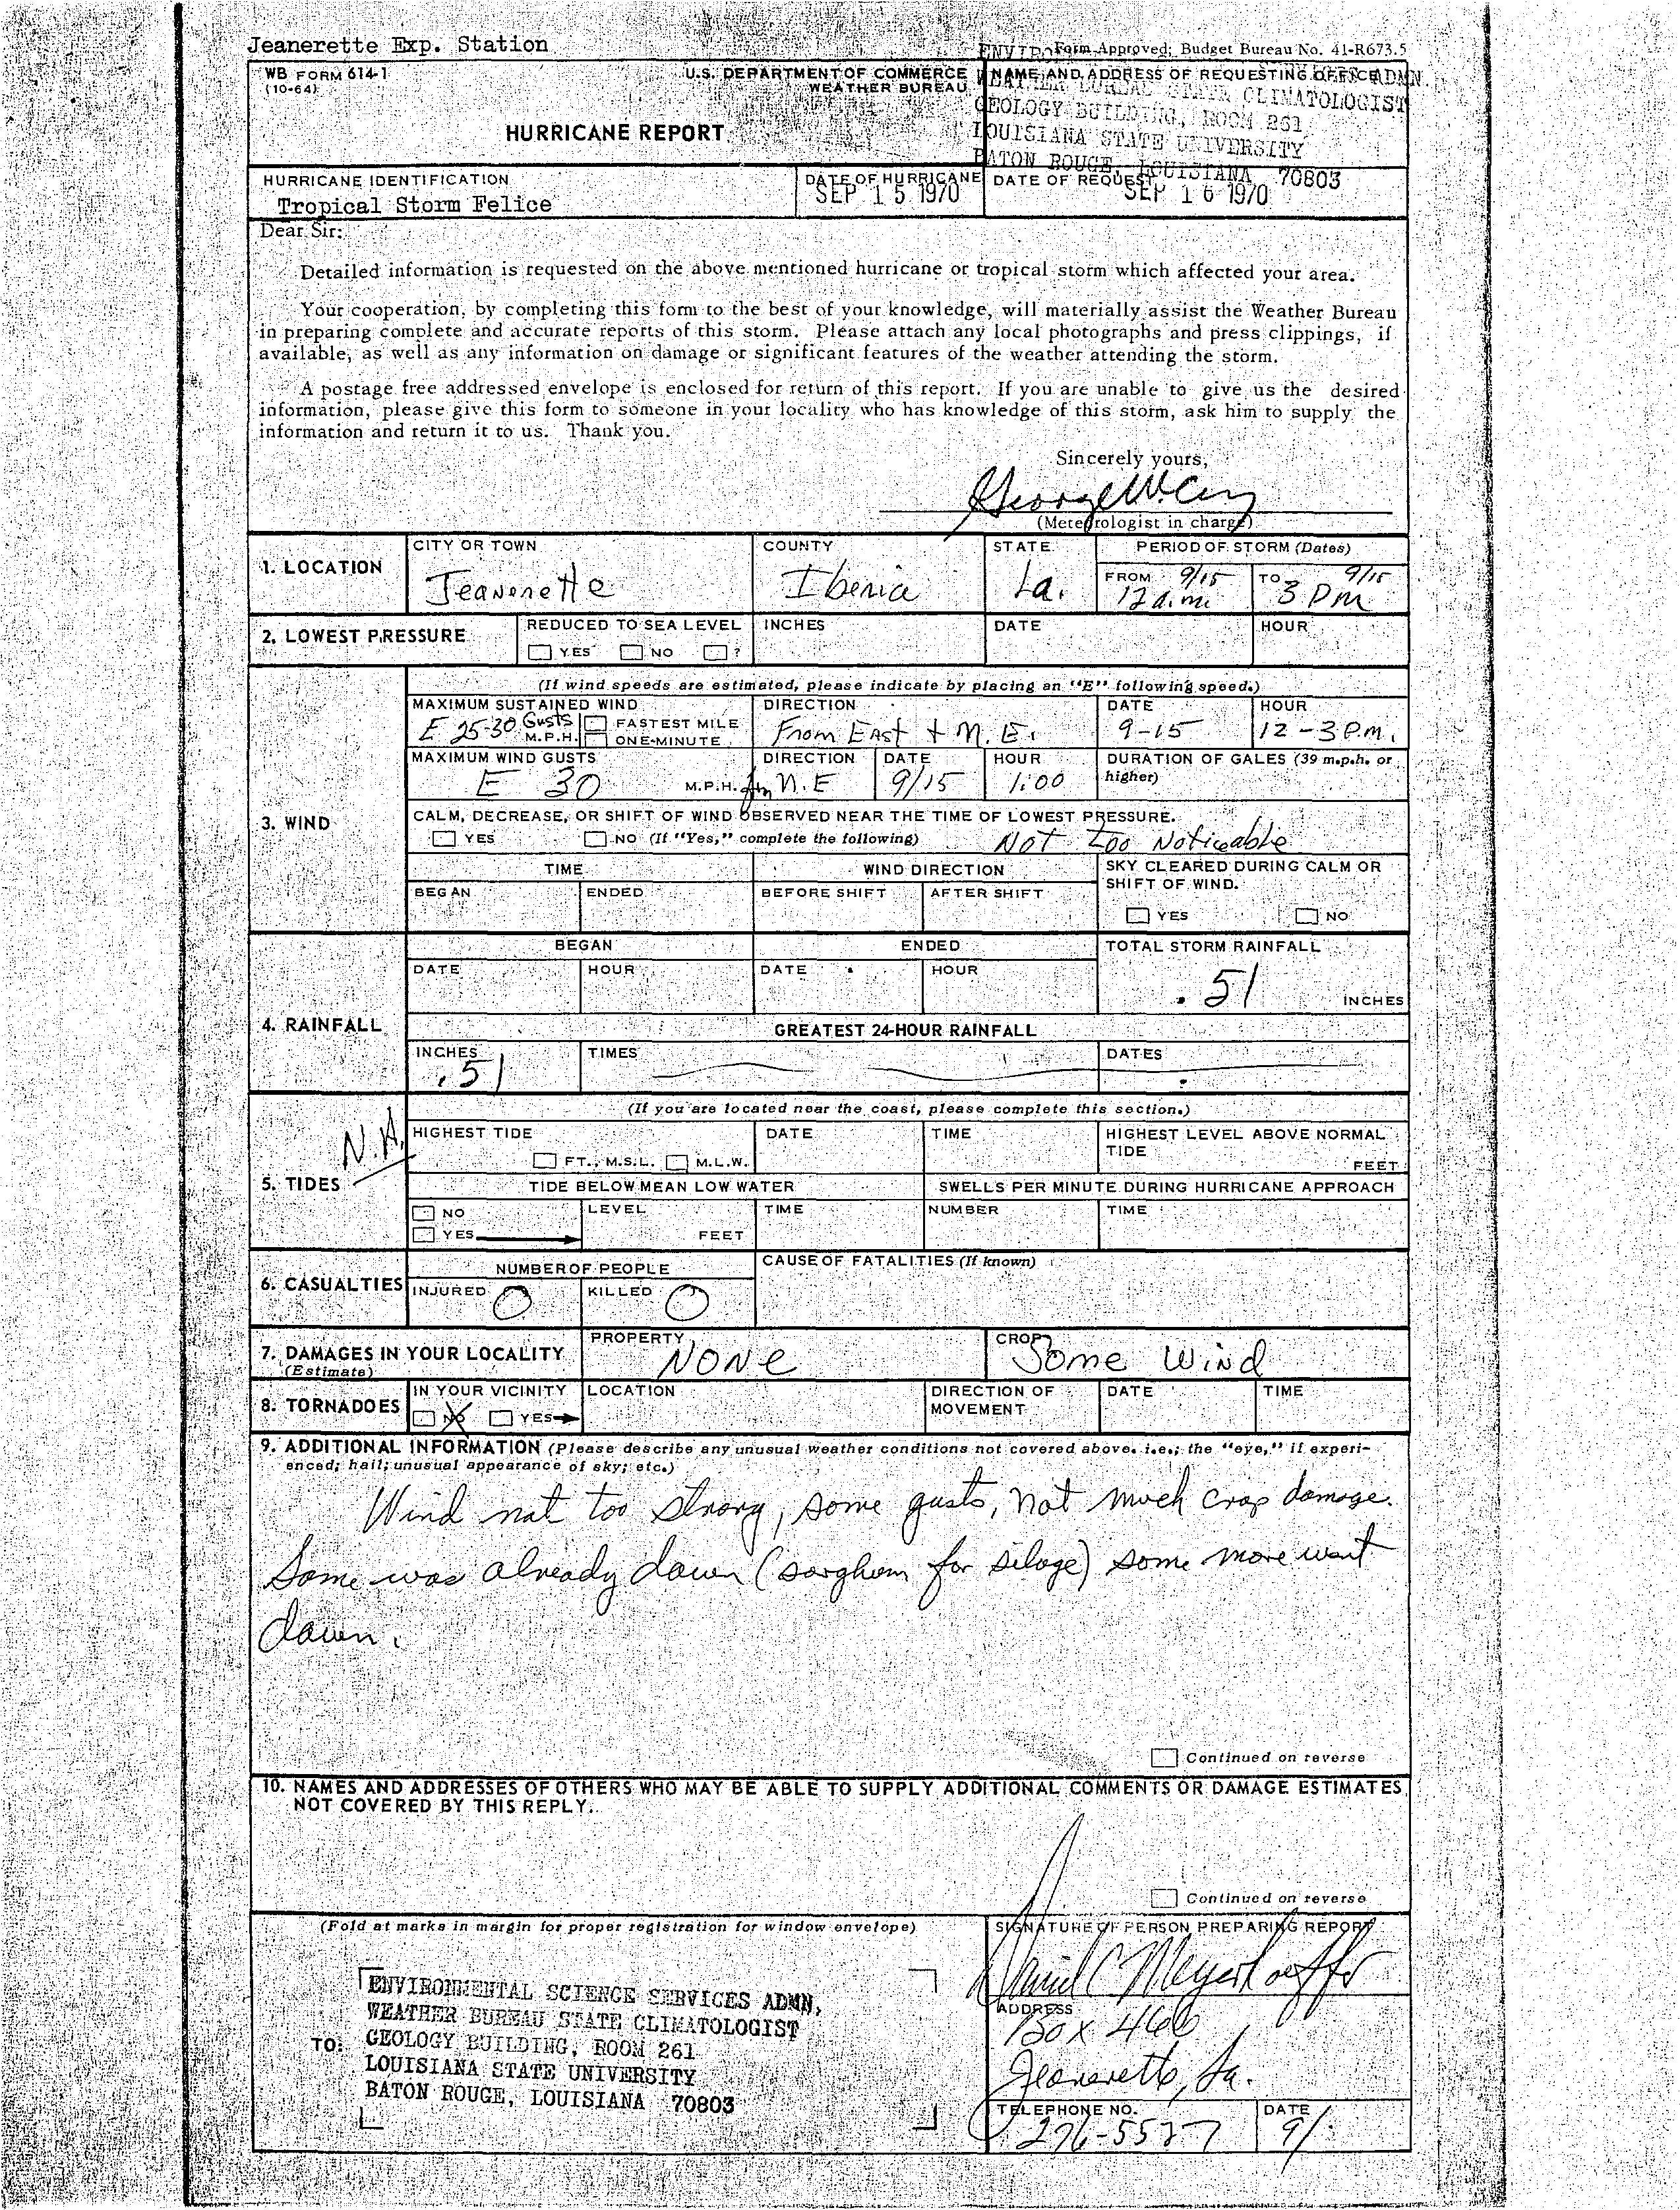 Jeanerette Exp. Station
Form Approved: Budget Bureau No. 41-R673.5
WB FORM 614-1
(10-64)
U.S. DEPARTMENT OF COMMERCE
WEATHER BUREAU
HURRICANE REPORT
NAME AND ADDRESS OF REQUESTING OFFICE ADMN.
WEATHER BUREAU STATE CLIMATOLOGIST
GEOLOGY BUILDING, ROOM 261
LOUISIANA STATE UNIVERSITY
BATON ROUGE, LOUISIANA 70803
HURRICANE IDENTIFICATION
Tropical Storm Felice
DATE OF HURRICANE
SEP 15 1970
DATE OF REQUEST
SEP 16 1970
Dear Sir:
Detailed information is requested on the above mentioned hurricane or tropical storm which affected your area.
Your cooperation, by completing this form to the best of your knowledge, will materially assist the Weather Bureau
in preparing complete and accurate reports of this storm. Please attach any local photographs and press clippings, if
available, as well as any information on damage or significant features of the weather attending the storm.
A postage free addressed envelope is enclosed for return of this report. If you are unable to give us the desired
information, please give this form to someone in your locality who has knowledge of this storm, ask him to supply the
information and return it to us. Thank you.
Sincerely yours,
George W. Cry
(Meteorologist in charge)
1. LOCATION
CITY OR TOWN
Jeanerette
COUNTY
Iberia
STATE
La.
PERIOD OF STORM (Dates)
FROM 9/15
12 a.m.
TO 9/15
3 PM
2. LOWEST PRESSURE
REDUCED TO SEA LEVEL
YES NO ?
INCHES
DATE
HOUR
3. WIND
(If wind speeds are estimated, please indicate by placing an "E" following speed.)
MAXIMUM SUSTAINED WIND
E 25-30 Gusts M.P.H.
FASTEST MILE
ONE-MINUTE
DIRECTION
From East + N.E.
DATE
9-15
HOUR
12-3 P.M.
MAXIMUM WIND GUSTS
E 30 M.P.H.
DIRECTION
fm N.E
DATE
9/15
HOUR
1:00
DURATION OF GALES (39 m.p.h. or
higher)
CALM, DECREASE, OR SHIFT OF WIND OBSERVED NEAR THE TIME OF LOWEST PRESSURE.
YES NO (If "Yes," complete the following) Not too Noticeable
TIME
BEGAN
ENDED
WIND DIRECTION
BEFORE SHIFT
AFTER SHIFT
SKY CLEARED DURING CALM OR
SHIFT OF WIND.
YES NO
4. RAINFALL
BEGAN
DATE
HOUR
ENDED
DATE
HOUR
TOTAL STORM RAINFALL
.51 INCHES
GREATEST 24-HOUR RAINFALL
INCHES
.51
TIMES
DATES
N.A.
5. TIDES
(If you are located near the coast, please complete this section.)
HIGHEST TIDE
FT., M.S.L. M.L.W.
DATE
TIME
HIGHEST LEVEL ABOVE NORMAL
TIDE
FEET
TIDE BELOW MEAN LOW WATER
NO
YES
LEVEL
FEET
TIME
SWELLS PER MINUTE DURING HURRICANE APPROACH
NUMBER
TIME
6. CASUALTIES
NUMBER OF PEOPLE
INJURED 0
KILLED 0
CAUSE OF FATALITIES (If known)
7. DAMAGES IN YOUR LOCALITY
(Estimate)
PROPERTY
None
CROP
Some Wind
8. TORNADOES
IN YOUR VICINITY
NO YES
LOCATION
DIRECTION OF
MOVEMENT
DATE
TIME
9. ADDITIONAL INFORMATION (Please describe any unusual weather conditions not covered above. i.e.; the "eye," if experi-
enced; hail; unusual appearance of sky; etc.)
Wind not too strong, some gusts, not much crop damage.
Some was already down (sorghum for silage) some more went
down.
Continued on reverse
10. NAMES AND ADDRESSES OF OTHERS WHO MAY BE ABLE TO SUPPLY ADDITIONAL COMMENTS OR DAMAGE ESTIMATES
NOT COVERED BY THIS REPLY.
Continued on reverse
(Fold at marks in margin for proper registration for window envelope)
TO:
ENVIRONMENTAL SCIENCE SERVICES ADMN,
WEATHER BUREAU STATE CLIMATOLOGIST
GEOLOGY BUILDING, ROOM 261
LOUISIANA STATE UNIVERSITY
BATON ROUGE, LOUISIANA 70803
SIGNATURE OF PERSON PREPARING REPORT
ADDRESS
Box 466
Jeanerette, La.
TELEPHONE NO.
276-5527
DATE
9/